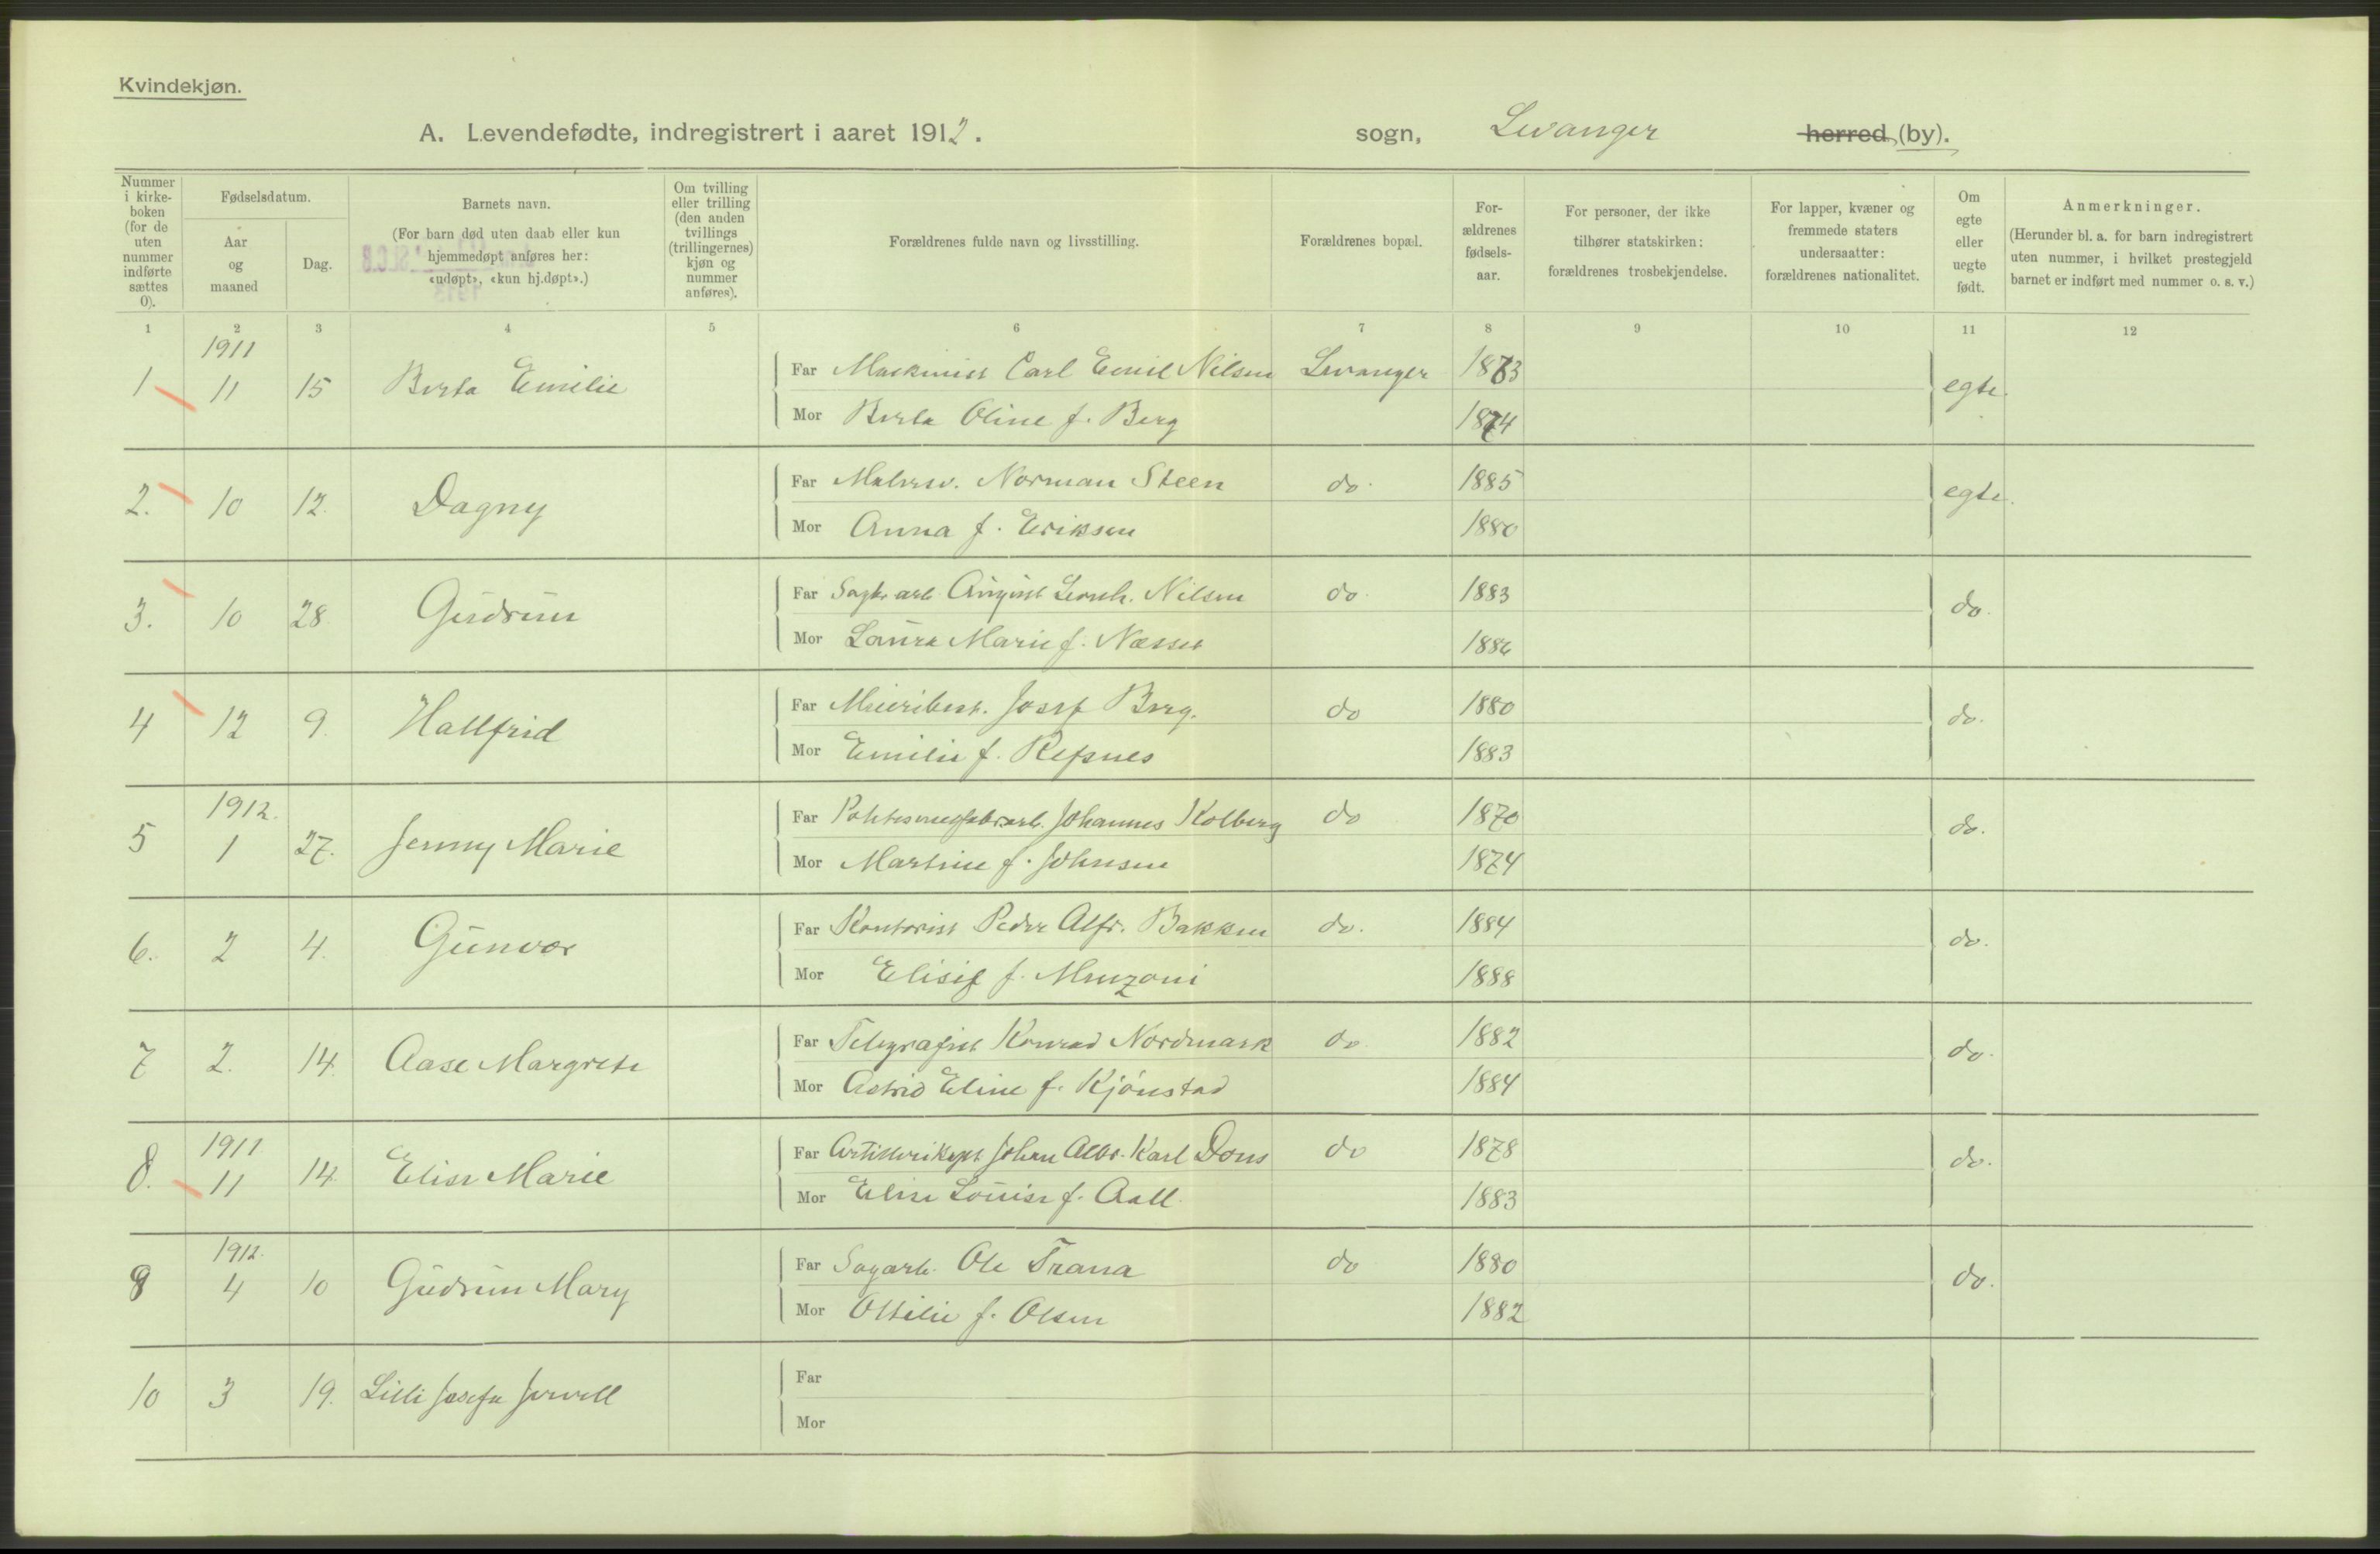 Kvindekjøn.
A. Levendefødte, indregistrert i aaret 1912. sogn, Levanger herred (by).
Nummer i kirke-boken (for de uten nummer indførte sættes 0).
Fødselsdatum.
Aar og maaned
Dag.
Barnets navn.
(For barn død uten daab eller kun hjemmedøpt anføres her: «udøpt», «kun hj.døpt».)
Om tvilling eller trilling (den anden tvillings (trillingernes) kjøn og nummer anføres).
Forældrenes fulde navn og livsstilling.
Forældrenes bopæl.
For-ældrenes fødsels-aar.
For personer, der ikke tilhører statskirken: forældrenes trosbekjendelse.
For lapper, kvæner og fremmede staters undersaatter: forældrenes nationalitet.
Om egte eller uegte født.
Anmerkninger.
(Herunder bl. a. for barn indregistrert uten nummer, i hvilket prestegjeld barnet er indført med nummer o. s. v.)
1 2 3 4 5 6 7 8 9 10 11 12
1911
1 11 15 Berta Emilie Far Maskinist Carl Emil Nilsen Levanger 1873 egte.
Mor Berta Oline f. Berg 1874
2. 10 12. Dagny Far Malersv. Norman Steen do. 1885 egte.
Mor Anna f. Eriksen 1880
3. 10 28. Gudrun Far Sagbr.arb. August Leonh. Nilsen do. 1883 do.
Mor Laura Marie f. Næsset 1886
4 12 9. Hallfrid Far Meieribest. Josef Berg. do 1880 do.
Mor Emilie f. Refsnes 1883
1912.
5 1 27. Jenny Marie Far Johannes Kolberg do 1870 do.
Mor Martine f. Johnsen 1874
6. 2 4. Gunvor Far Kontorist Peder Alfr. Bakken do. 1884 do.
Mor Elisif f. Menzoni 1888
7 2. 14. Aase Margrete Far Telegrafist Konrad Nordmark do. 1882 do.
Mor Astrid Eline f. Kjønstad 1884
1911
8. 11 14. Elise Marie Far Artillerikapt. Johan Albr. Karl Dons do 1878 do.
Mor Elise Louise f. Aall. 1883
1912.
9 4 10 Gudrun Mary Far Sagarb. Ole Trana do 1880 do.
Mor Ottilie f. Olsen 1882
10 3 19. Lilli Josefa Jervell Far
Mor